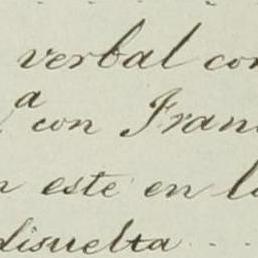 verbal con
a con Fran
n este en l
disuelta